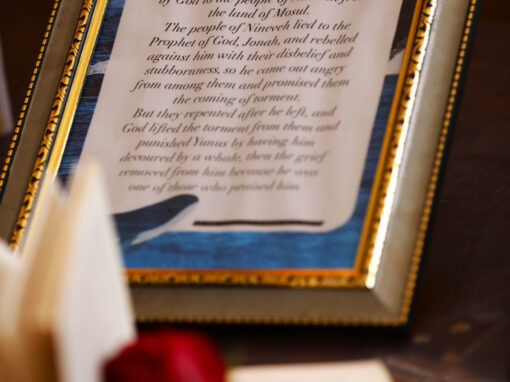 by God to the people of
the land of Mosul.
The people of Nineveh lied to the
Prophet of God, Jonah, and rebelled
against him with their disbelief and
stubbornness, so he came out angry
from among them and promised them
the coming of torment.
But they repented after he left, and
God lifted the torment from them and
punished Yunus by having him
devoured by a whale, then the grief
removed from him because he was
one of those who praised him